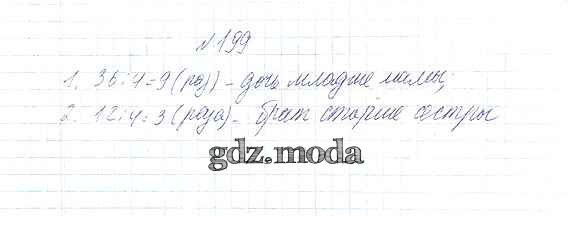 №199
1. 36:4=9 (раз) - дочь младше мамы;
2. 12:4=3 (раза) - брат старше сестры
gdz.moda